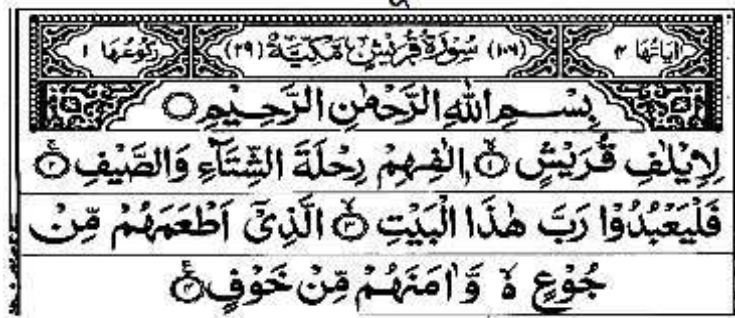 اٰيَاتُهَا ٤ (١٠٦) سُوْرَةُ قُرَيْشٍ مَّكِّيَّةٌ (٢٩) رُكُوْعُهَا ١
بِسْمِ اللّٰهِ الرَّحْمٰنِ الرَّحِيْمِ
لِاِيْلٰفِ قُرَيْشٍ ۙ﴿١﴾ اٖلٰفِهِمْ رِحْلَةَ الشِّتَآءِ وَالصَّيْفِ ۚ﴿٢﴾
فَلْيَعْبُدُوْا رَبَّ هٰذَا الْبَيْتِ ۙ﴿٣﴾ الَّذِيْٓ اَطْعَمَهُمْ مِّنْ
جُوْعٍ ۵ۙ وَّاٰمَنَهُمْ مِّنْ خَوْفٍ ﴿٤﴾